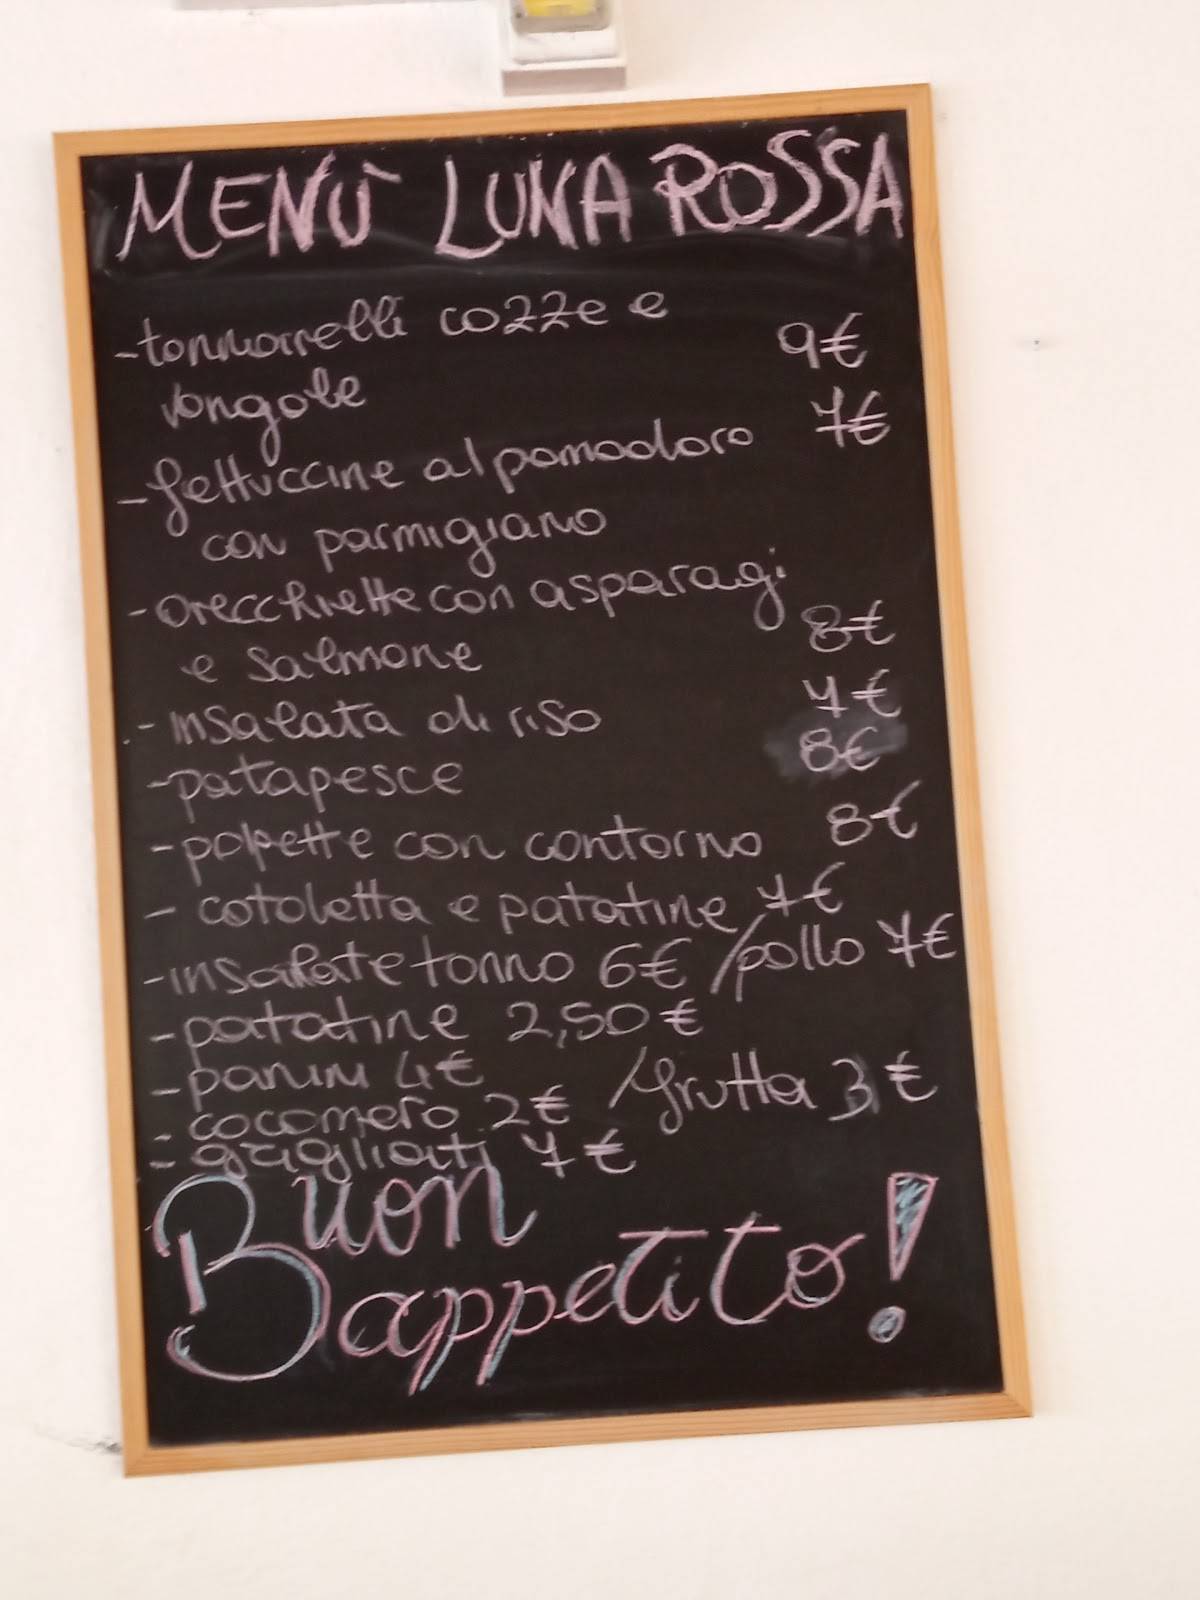 MENÙ LUNA ROSSA
- tonnarelli cozze e
vongole 9€
- fettuccine al pomodoro 7€
con parmigiano
- orecchiette con asparagi
e salmone 8€
- insalata di riso 7€
- patapesce 8€
- polpette con contorno 8€
- cotoletta e patatine 7€
- insalate tonno 6€ /pollo 7€
- patatine 2,50€
- panini 4€
- cocomero 2€ /frutta 3€
- grigliati 7€
Buon
appetito!